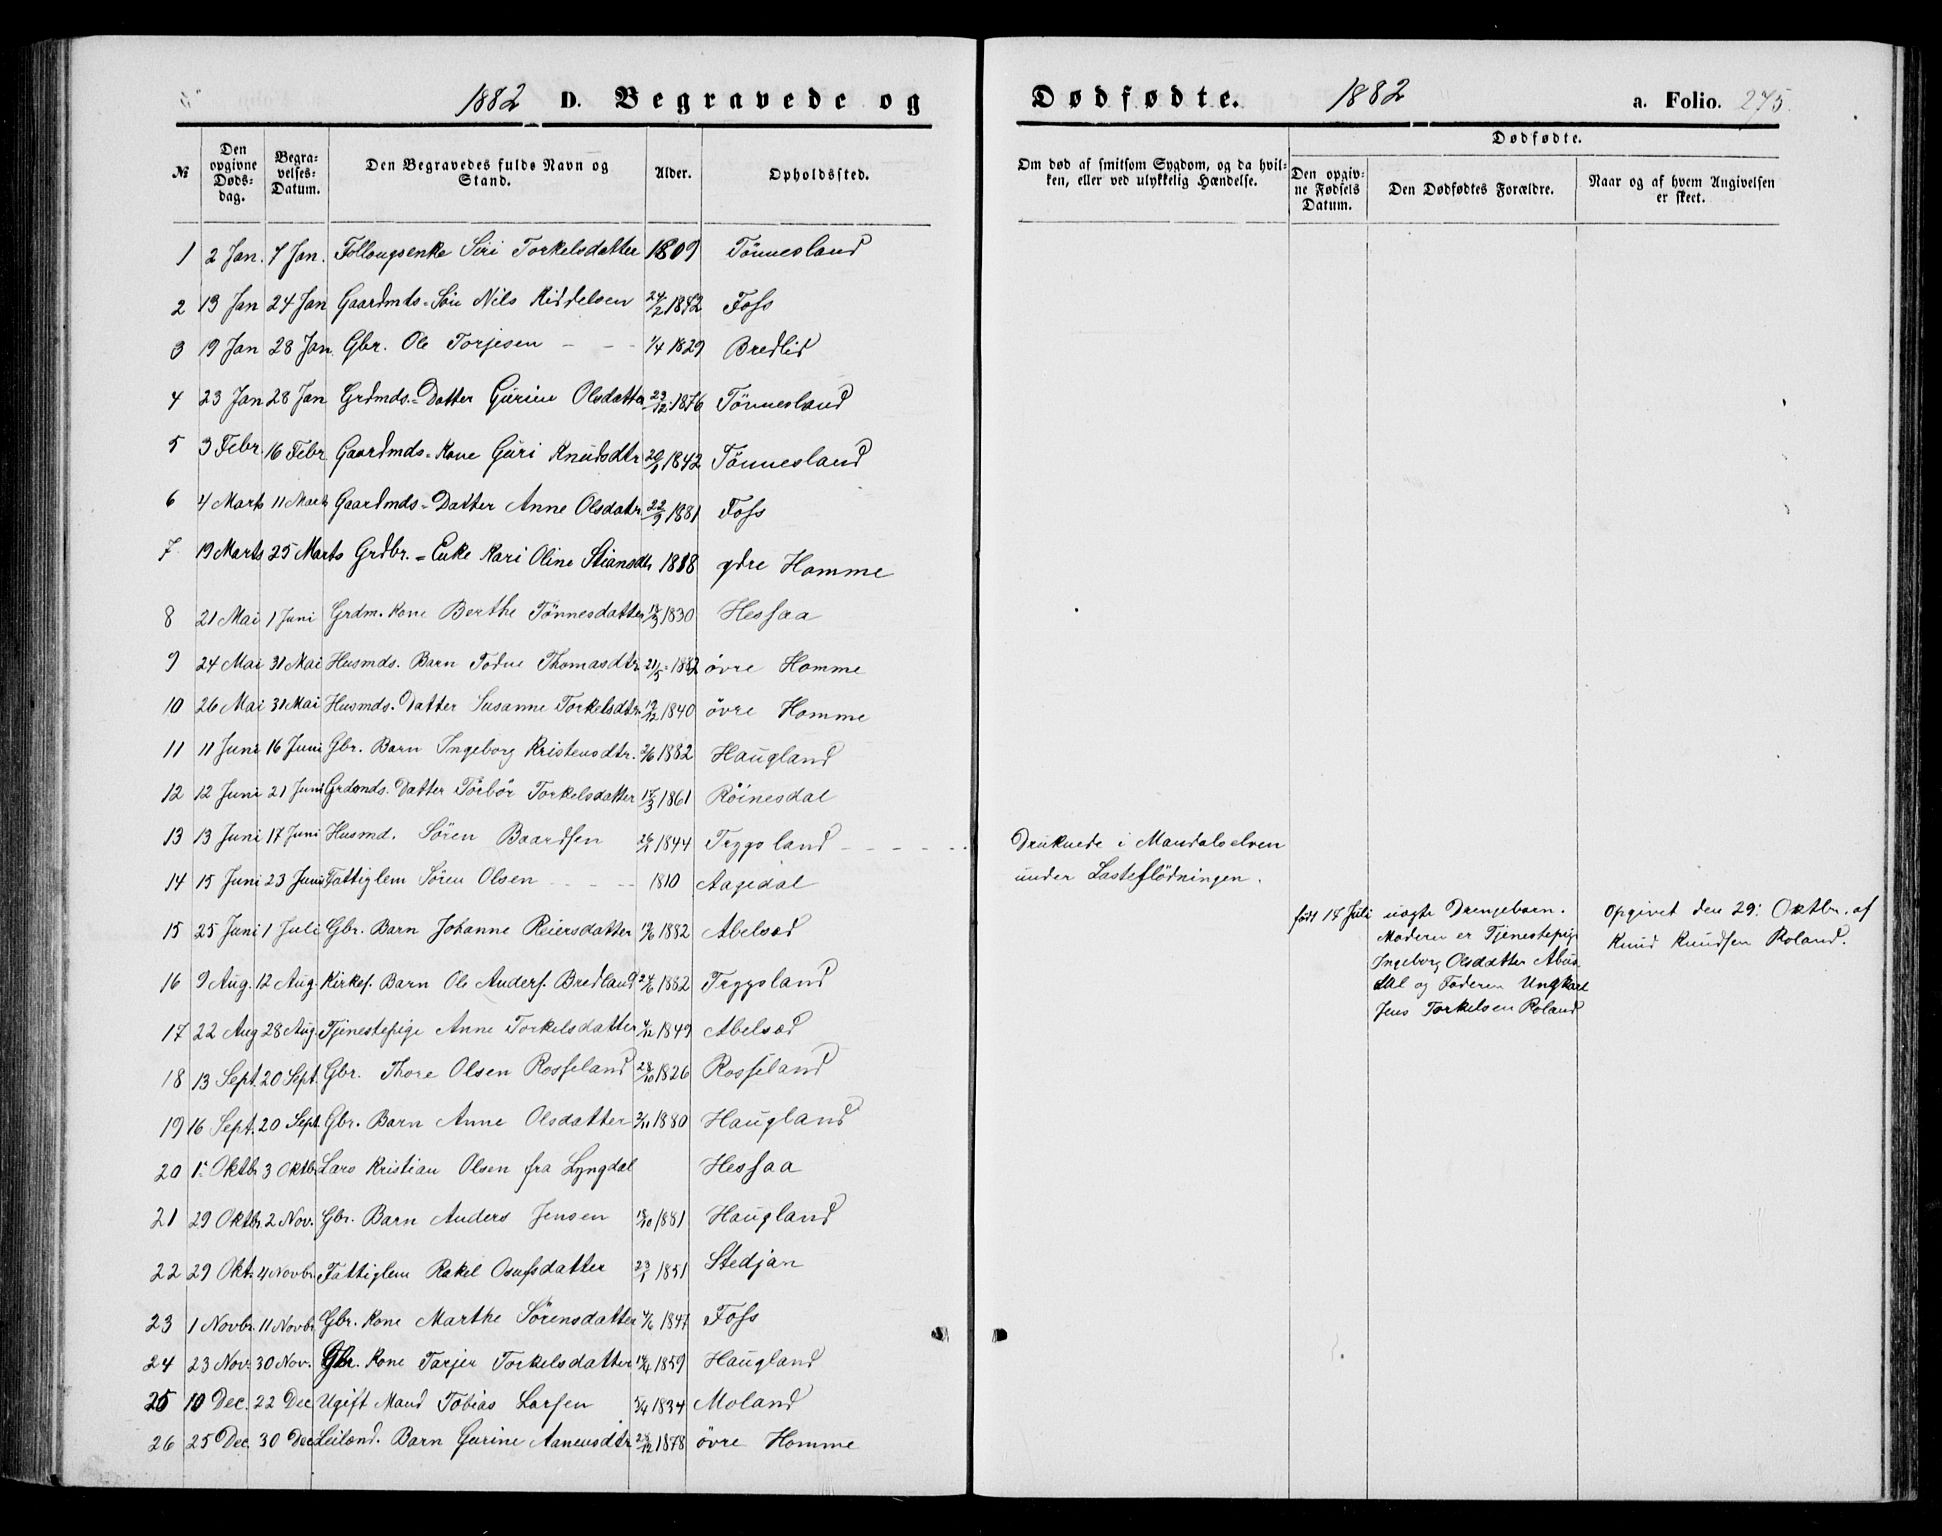 1882 D. Begravede og
Dødfødte. 1882 a. Folio. 275.
№
Den opgivne Døds-dag.
Begra-velses-Datum.
Den Begravedes fulde Navn og Stand.
Alder.
Opholdssted.
Om død af smitsom Sygdom, og da hvil-ken, eller ved ulykkelig Hændelse.
Dødfødte.
Den opgiv-ne Fødsels Datum.
Den Dødfødtes Forældre.
Naar og af hvem Angivelsen er skeet.
1 2 Jan. 7 Jan. Follaugsenke Siri Torkelsdatter 1809 Tönnesland
2 13 Jan 24 Jan Gaardmds. Sön Nils Kiddelsen 24/2 1842 Foss
3 19 Jan 28 Jan. Gbr. Ole Torjesen - - - 1/4 1829 Bredlid
4 23 Jan 28 Jan Grdmds. Datter Gurine Olsdatter 23/12 1876 Tönnesland
5 3 Febr. 16 Febr Gaardmds. Kone Guri Knudsdtr 1842 Tönnesland
6 4 Marts 11 Marts Gaardmds. Datter Anne Olsdatr. 22/9 1881 Foss
7 19 Marts 25 Marts Grdbr. Enke Kari Oline Stiansdtr 1818 ydre Homme
8 21 Mai 1 Juni Grdm. Kone Berthe Tönnesdatter 1830 Hessaa
9 24 Mai 31 Mai Husmds. Barn Todne Thomasdtr. 21/5 1882 övre Homme
10 26 Mai 31 Mai Husmds. Datter Susanne Torkelsdtr. 19/12 1840 övre Homme
11 11 Juni 16 Juni Gbr. Barn Ingeborg Kristensdtr. 2/6 1882 Haugland
12 12 Juni 21 Juni Grdmds. Datter Törbör Torkelsdatter 17/3 1861 Röinesdal
13 13 Juni 17 Juni Husmd. Sören Baardsen 26/1 1844 Trygsland - - - - - Druknede i Mandalselven
under Lasteflödningen.
14 15 Juni 23 Juni Fattiglem Sören Olsen - - - - 1810 Aagedal
15 25 Juni 1 Juli Gbr. Barn Johanne Reiersdatter 1882 Abelsæd
född 17 Juli uægte Drengebarn.
Moderen er Tjenestepige
Ingeborg Olsdatter Abus
dal og Faderen Ungkarl
Jens Torkelsen Roland
Opgivet den 29. Oktbr. af
Knud Knudsen Roland.
16 9 Aug. 12 Aug. Kirkes. Barn Ole Anders. Bredland 24/6 1882 Trygsland
17 22 Aug 28 Aug. Tjenestepige Anne Torkelsdatter 1849 Abelsæd
18 13 Sept. 20 Sept. Gbr. Thore Olsen Rosseland 28/10 1826 Rosseland
19 16 Sept. 20 Sept. Gbr. Barn Anne Olsdatter 2/11 1880 Haugland
20 1. Oktbr 3 Oktbr Lars Kristian Olsen fra Lyngdal Hessaa
21 29 Oktbr 2 Nov. Gbr. Barn Anders Jensen 18/10 1881 Haugland
22 29 Okt. 4 Novbr. Fattiglem Rakel Osufsdatter 23/1 1851 Stedjan
23 1 Novbr. 11 Novbr. Gbr. Kone Marthe Sörensdatter 4/6 1847 Foss
24 23 Nov. 30 Nov. Gbr. Kone Tarjer Torkelsdatter 1859 Haugland
25 10 Dec. 22 Dec Ugift Mand Tobias Larsen 5/4 1834 Moland
26 25 Dec. 30 Dec. Leilænd. Barn Gurine Aanensdtr. 28/12 1878 övre Homme